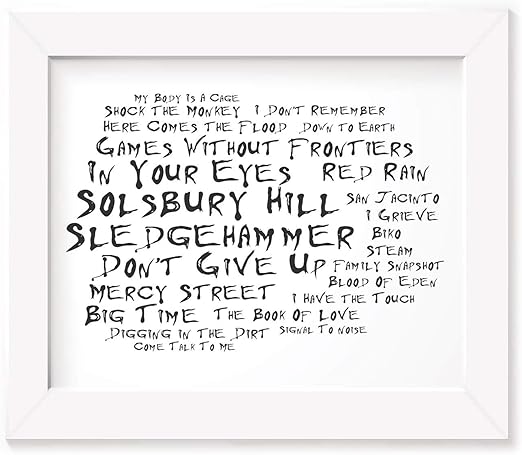 My Body Is A Cage
Shock The Monkey I Don't Remember
Here Comes The Flood Down To Earth
Games Without Frontiers
In Your Eyes Red Rain
Solsbury Hill San Jacinto
I Grieve
Sledgehammer Biko
Steam
Don't Give Up Family Snapshot
Blood Of Eden
Mercy Street I Have The Touch
Big Time The Book Of Love
Digging In The Dirt Signal To Noise
Come Talk To Me